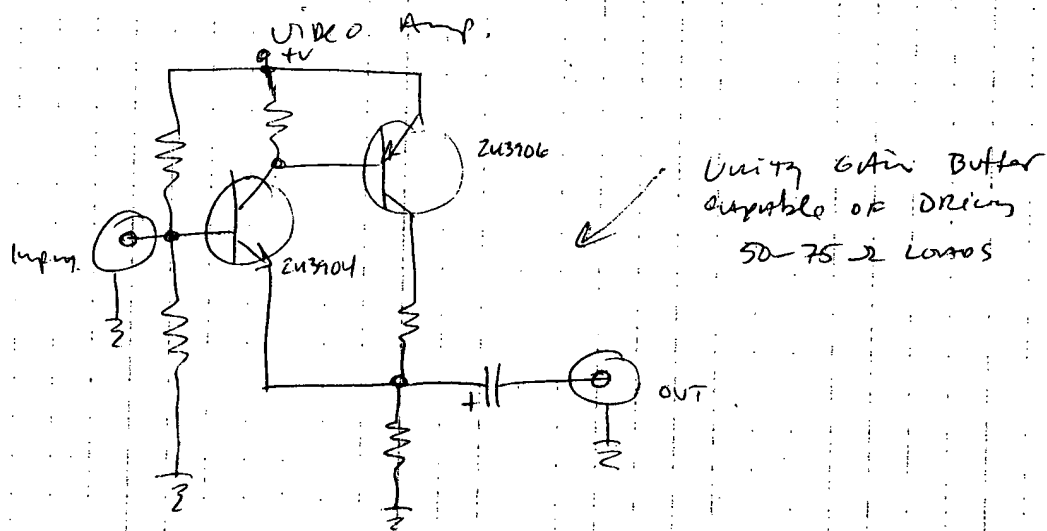 Video Amp.
+V
2N3906
Unity Gain Buffer
Capable of Driving
50-75 Ω Loads
Input
2N3904
+
OUT